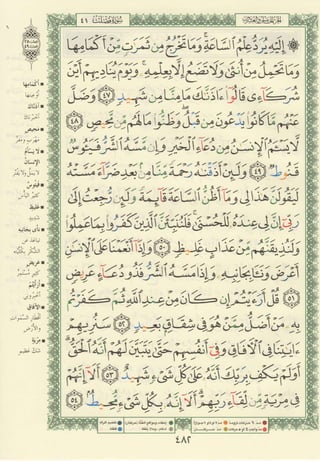 سُورَةُ فُصِّلَتْ ٤١
۞ إِلَيْهِ يُرَدُّ عِلْمُ السَّاعَةِ ۚ وَمَا تَخْرُجُ مِن ثَمَرَٰتٍ مِّنْ أَكْمَامِهَا
وَمَا تَحْمِلُ مِنْ أُنثَىٰ وَلَا تَضَعُ إِلَّا بِعِلْمِهِ ۚ وَيَوْمَ يُنَادِيهِمْ أَيْنَ
شُرَكَآءِى قَالُوٓا۟ ءَاذَنَّٰكَ مَا مِنَّا مِن شَهِيدٍ ٤٧ وَضَلَّ
عَنْهُم مَّا كَانُوا۟ يَدْعُونَ مِن قَبْلُ ۖ وَظَنُّوا۟ مَا لَهُم مِّن مَّحِيصٍ ٤٨
لَّا يَسْـَٔمُ الْإِنسَٰنُ مِن دُعَآءِ الْخَيْرِ وَإِن مَّسَّهُ الشَّرُّ فَيَـُٔوسٌ
قَنُوطٌ ٤٩ وَلَئِنْ أَذَقْنَٰهُ رَحْمَةً مِّنَّا مِنۢ بَعْدِ ضَرَّآءَ مَسَّتْهُ
لَيَقُولَنَّ هَٰذَا لِى وَمَآ أَظُنُّ السَّاعَةَ قَآئِمَةً وَلَئِن رُّجِعْتُ إِلَىٰ
رَبِّىٓ إِنَّ لِى عِندَهُۥ لَلْحُسْنَىٰ ۚ فَلَنُنَبِّئَنَّ الَّذِينَ كَفَرُوا۟ بِمَا عَمِلُوا۟
وَلَنُذِيقَنَّهُم مِّنْ عَذَابٍ غَلِيظٍ ٥٠ وَإِذَآ أَنْعَمْنَا عَلَى الْإِنسَٰنِ
أَعْرَضَ وَنَـَٔا بِجَانِبِهِۦ وَإِذَا مَسَّهُ الشَّرُّ فَذُو دُعَآءٍ عَرِيضٍ
٥١ قُلْ أَرَءَيْتُمْ إِن كَانَ مِنْ عِندِ اللَّهِ ثُمَّ كَفَرْتُم
بِهِۦ مَنْ أَضَلُّ مِمَّنْ هُوَ فِى شِقَاقٍۭ بَعِيدٍ ٥٢ سَنُرِيهِمْ
ءَايَٰتِنَا فِى الْـَٔافَاقِ وَفِىٓ أَنفُسِهِمْ حَتَّىٰ يَتَبَيَّنَ لَهُمْ أَنَّهُ الْحَقُّ ۗ
أَوَلَمْ يَكْفِ بِرَبِّكَ أَنَّهُۥ عَلَىٰ كُلِّ شَىْءٍ شَهِيدٌ ٥٣ أَلَآ إِنَّهُمْ
فِى مِرْيَةٍ مِّن لِّقَآءِ رَبِّهِمْ ۗ أَلَآ إِنَّهُۥ بِكُلِّ شَىْءٍ مُّحِيطٌۢ ٥٤
٤٨٢